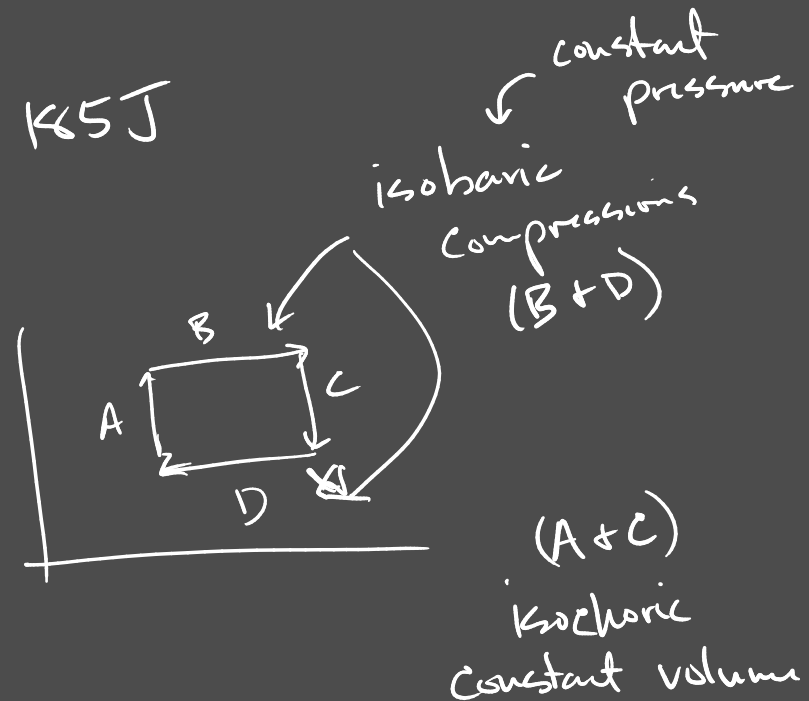 constant
pressure
185J
isobaric
compressions
(B + D)
B
A
C
D
(A + C)
isochoric
constant volume